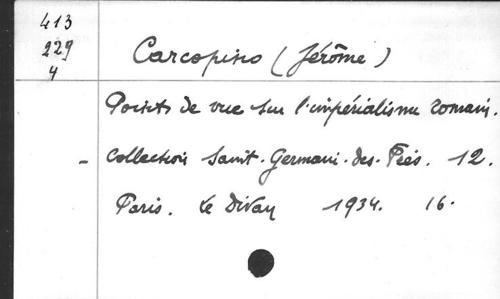 413
229
4
Carcopino (Jérôme)
Points de vue sur l'impérialisme romain.
- Collection Saint-Germain-des-Prés. 12.
Paris. Le Divan 1934. 16.